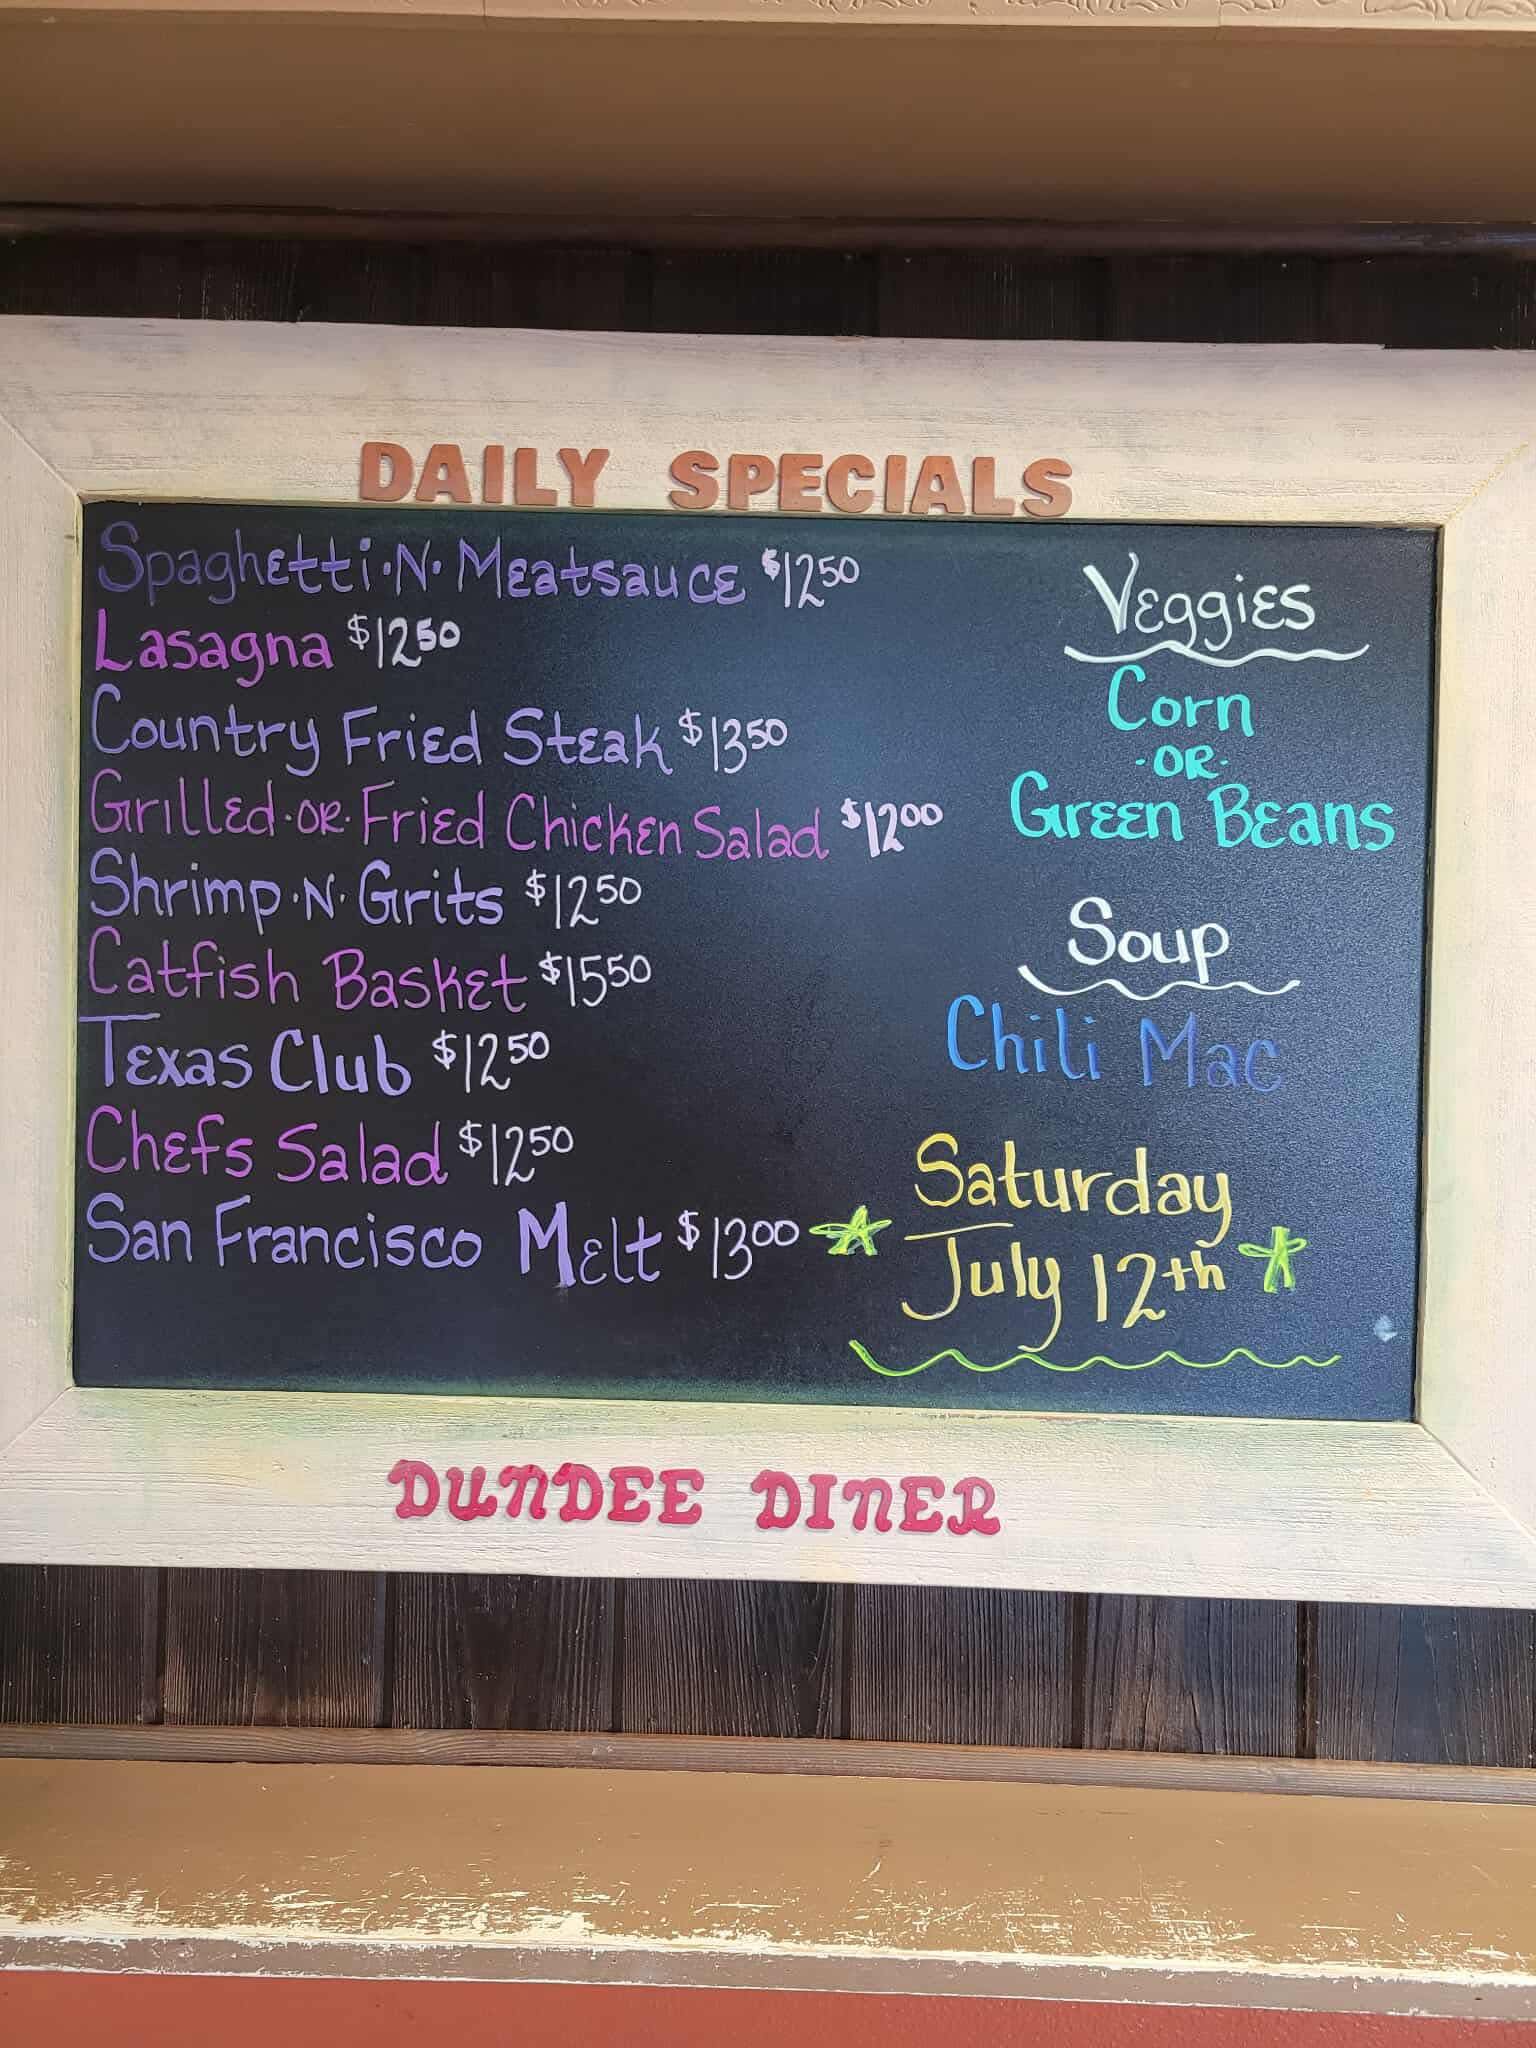 DAILY SPECIALS
Spaghetti·N·Meatsauce $1250
Lasagna $1250
Country Fried Steak $1350
Grilled·OR·Fried Chicken Salad $1200
Shrimp·N·Grits $1250
Catfish Basket $1550
Texas Club $1250
Chefs Salad $1250
San Francisco Melt $1300
Veggies
Corn
·OR·
Green Beans
Soup
Chili Mac
Saturday
July 12th
DUNDEE DINER